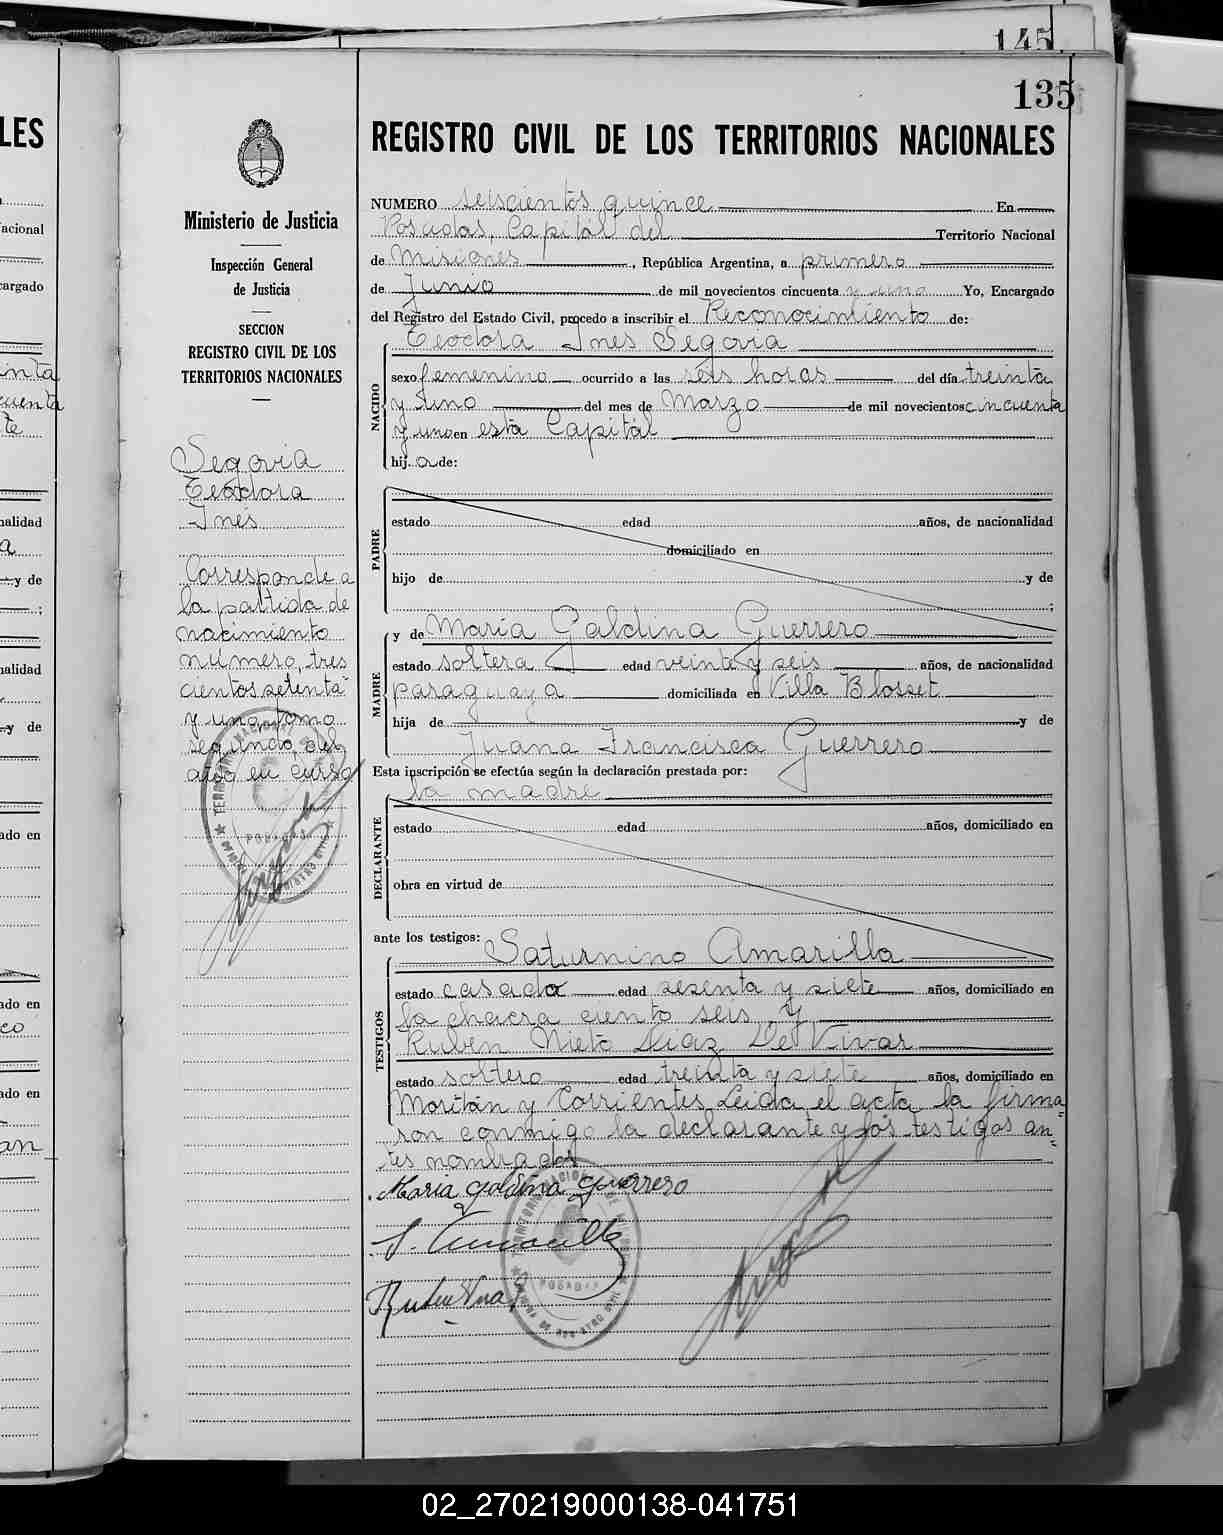 145
135
LES
acional
cargado
nta
cuenta
te
nalidad
a
y de
nalidad
y de
ado en
ado en
co
ado en
an
Ministerio de Justicia
Inspección General
de Justicia
SECCION
REGISTRO CIVIL DE LOS
TERRITORIOS NACIONALES
Segovia
Teodora
Inés
Corresponde a
la partida de
nacimiento
número, tres
cientos setenta
y uno, tomo
segundo, del
año en curso
POSADAS
REGISTRO CIVIL DE LOS TERRITORIOS NACIONALES
NUMERO seiscientos quince En
Posadas, Capitál del Territorio Nacional
de Misiones, República Argentina, a primero
de Junio de mil novecientos cincuenta y uno Yo, Encargado
del Registro del Estado Civil, procedo a inscribir el Reconocimiento de:
Teodora Ines Segovia
NACIDO
sexo femenino ocurrido a las seis horas del día treinta
y uno del mes de Marzo de mil novecientos cincuenta
y uno en esta Capitál
hij a de:
PADRE
estado edad años, de nacionalidad
domiciliado en
hijo de y de
;
MADRE
y de María Galdina Guerrero
estado soltera edad veinte y seis años, de nacionalidad
paraguaya domiciliada en Villa Blosset
hija de y de
Juana Francisca Guerrero
Esta inscripción se efectúa según la declaración prestada por:
la madre
DECLARANTE
estado edad años, domiciliado en
obra en virtud de
ante los testigos: Saturnino Amarilla
TESTIGOS
estado casado edad sesenta y siete años, domiciliado en
la chacra ciento seis, y
Rubén Nieto Diaz De Vivar
estado soltero edad treinta y siete años, domiciliado en
Moritán y Corrientes Leida el acta, la firma=
ron conmigo la declarante y los testigos an=
tes nombrados
Maria Galdina Guerrero
S. Amarilla
POSADAS
02_270219000138-041751